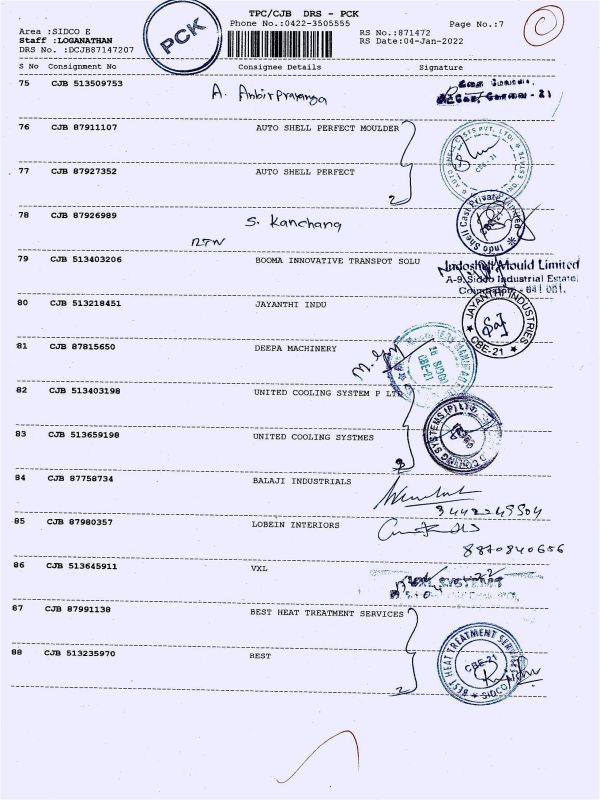 TPC/CJB DRS - PCK
PCK
Phone No.:0422-3505555
Page No.:7
Area :SIDCO E
Staff :LOGANATHAN
DRS No. :DCJB87147207
RS No.:871472
RS Date:04-Jan-2022
S No Consignment No Consignee Details Signature
75 CJB 513509753
கோவை - 21
76 CJB 87911107 AUTO SHELL PERFECT MOULDER
77 CJB 87927352 AUTO SHELL PERFECT
CBE-21
2
78 CJB 87926989 S. Kanchana
Indo Shell Cast Private Limited
RTN
79 CJB 513403206 BOOMA INNOVATIVE TRANSPOT SOLU
Indoshell Mould Limited
A-9, Sidco Industrial Estate,
Coimbatore - 641 021.
80 CJB 513218451 JAYANTHI INDU
JAYANTHI INDUSTRIES
CBE-21
81 CJB 87815650 DEEPA MACHINERY
SIDCO
CBE-21
82 CJB 513403198 UNITED COOLING SYSTEM P LTD
83 CJB 513659198 UNITED COOLING SYSTMES
COOLING SYSTEMS (P) LTD.
84 CJB 87758734 BALAJI INDUSTRIALS
85 CJB 87980357 LOBEIN INTERIORS
8870840656
86 CJB 513645911 VXL
87 CJB 87991138 BEST HEAT TREATMENT SERVICES
88 CJB 513235970 BEST
BEST HEAT TREATMENT SERVICES
CBE-21
SIDCO
2